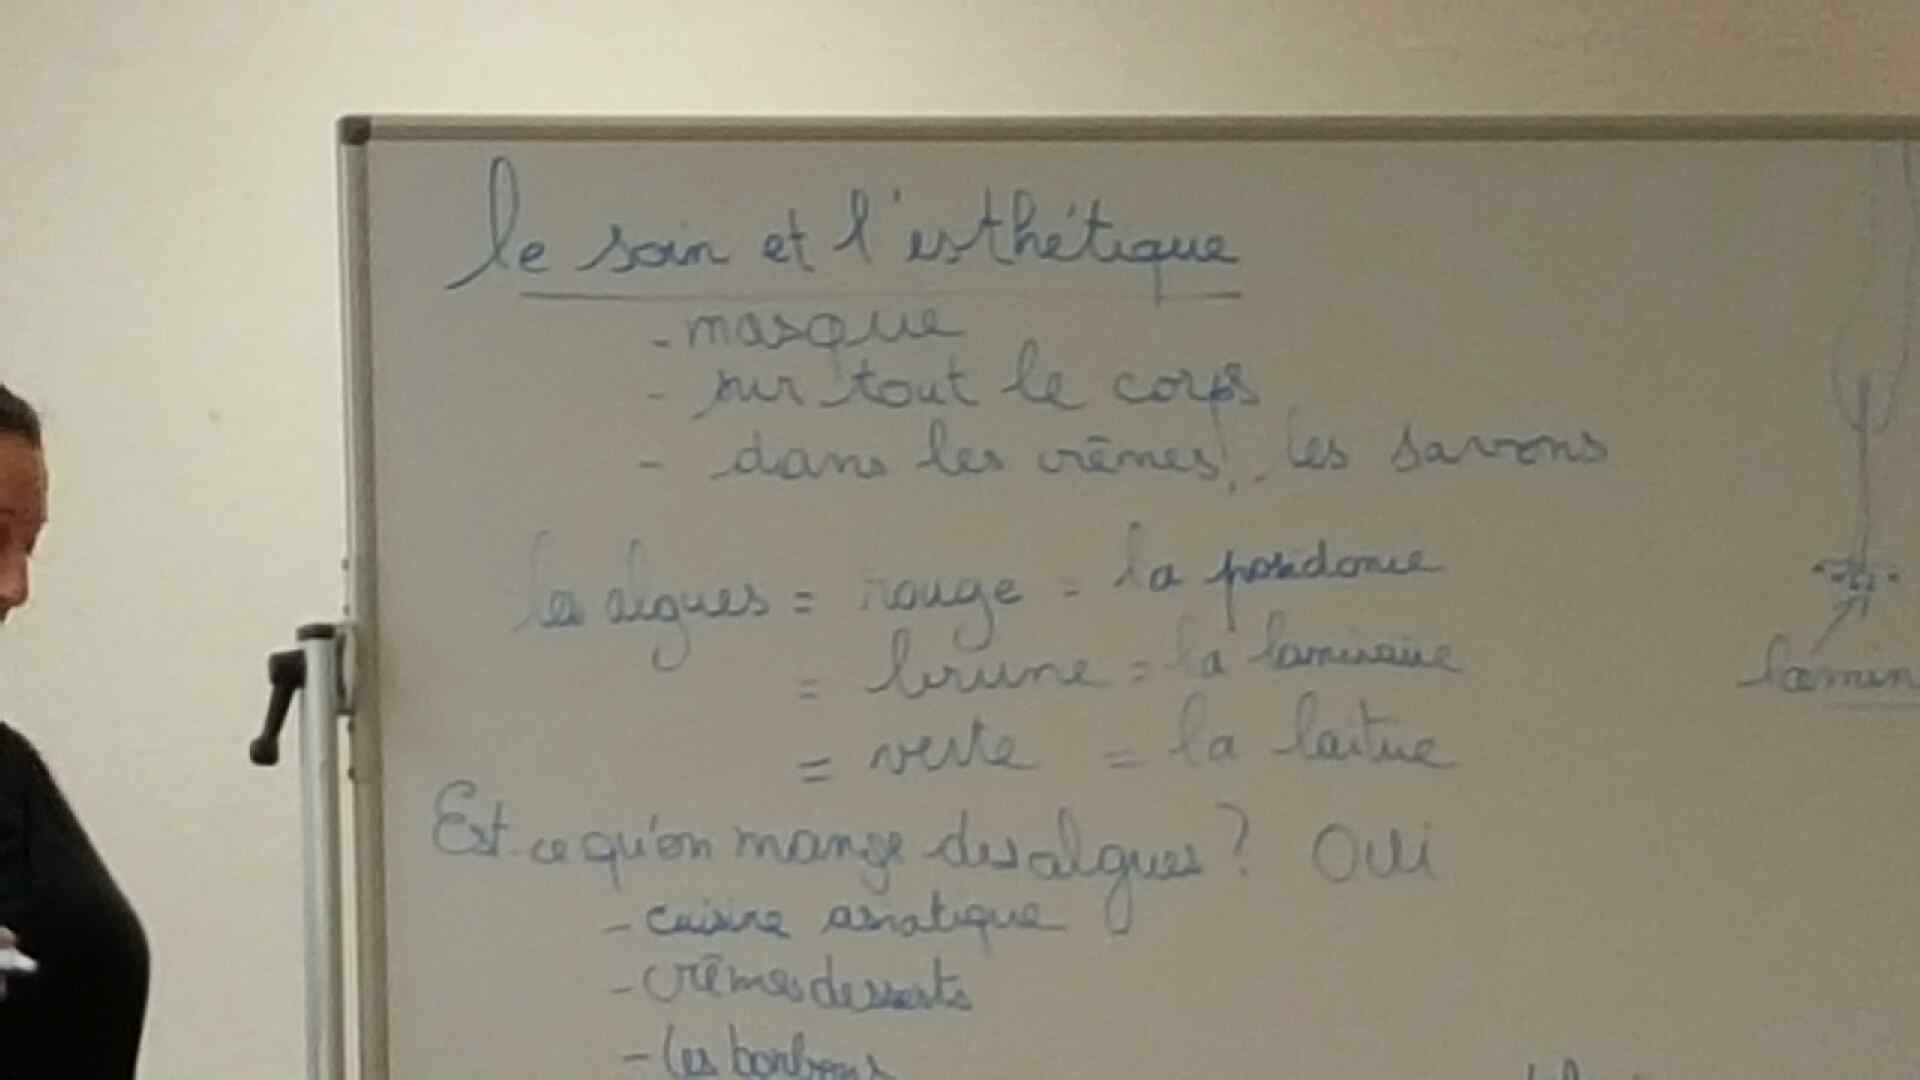 le soin et l'esthétique
- masque
- sur tout le corps
- dans les crêmes, les savons
les algues = rouge = la posidonie
= brune = la laminaire
= verte = la laitue
lamin
Est-ce qu'on mange des algues? OUI
- cuisine asiatique
- crêmes desserts
- les bonbons